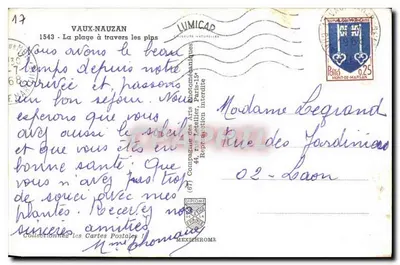 17
VAUX-NAUZAN
1543 - La plage à travers les pins
Nous avons le beau
temps depuis notre
arrivée et passons
un bon séjour. Nous
espérons que vous
avez aussi le soleil
et que vous êtes en
bonne santé. Que
vous n'avez pas trop
de souci avec mes
plantes. Recevez nos
sincères amitiés
Mme Thomain
Collectionnez les Cartes Postales !
LUMICAP
(67) Compagnie des Arts Photomécaniques
Reproduction interdite
MEXICHROME
0,25
Madame Legrand
Rue des Jardiniers
02 - Laon